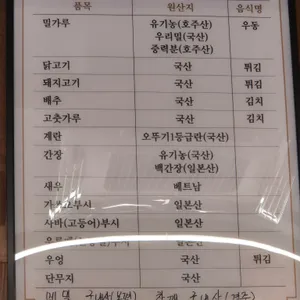 품목 원산지 음식명
밀가루 유기농(호주산) 우동
우리밀(국산)
중력분(호주산)
닭고기 국산 튀김
돼지고기 국산 튀김
배추 국산 김치
고춧가루 국산 김치
계란 오뚜기1등급란(국산)
간장 유기농(국산)
백간장(일본산)
새우 베트남
가쓰오부시 일본산
사바(고등어)부시 일본산
일본산
우엉 국산 튀김
단무지 국산